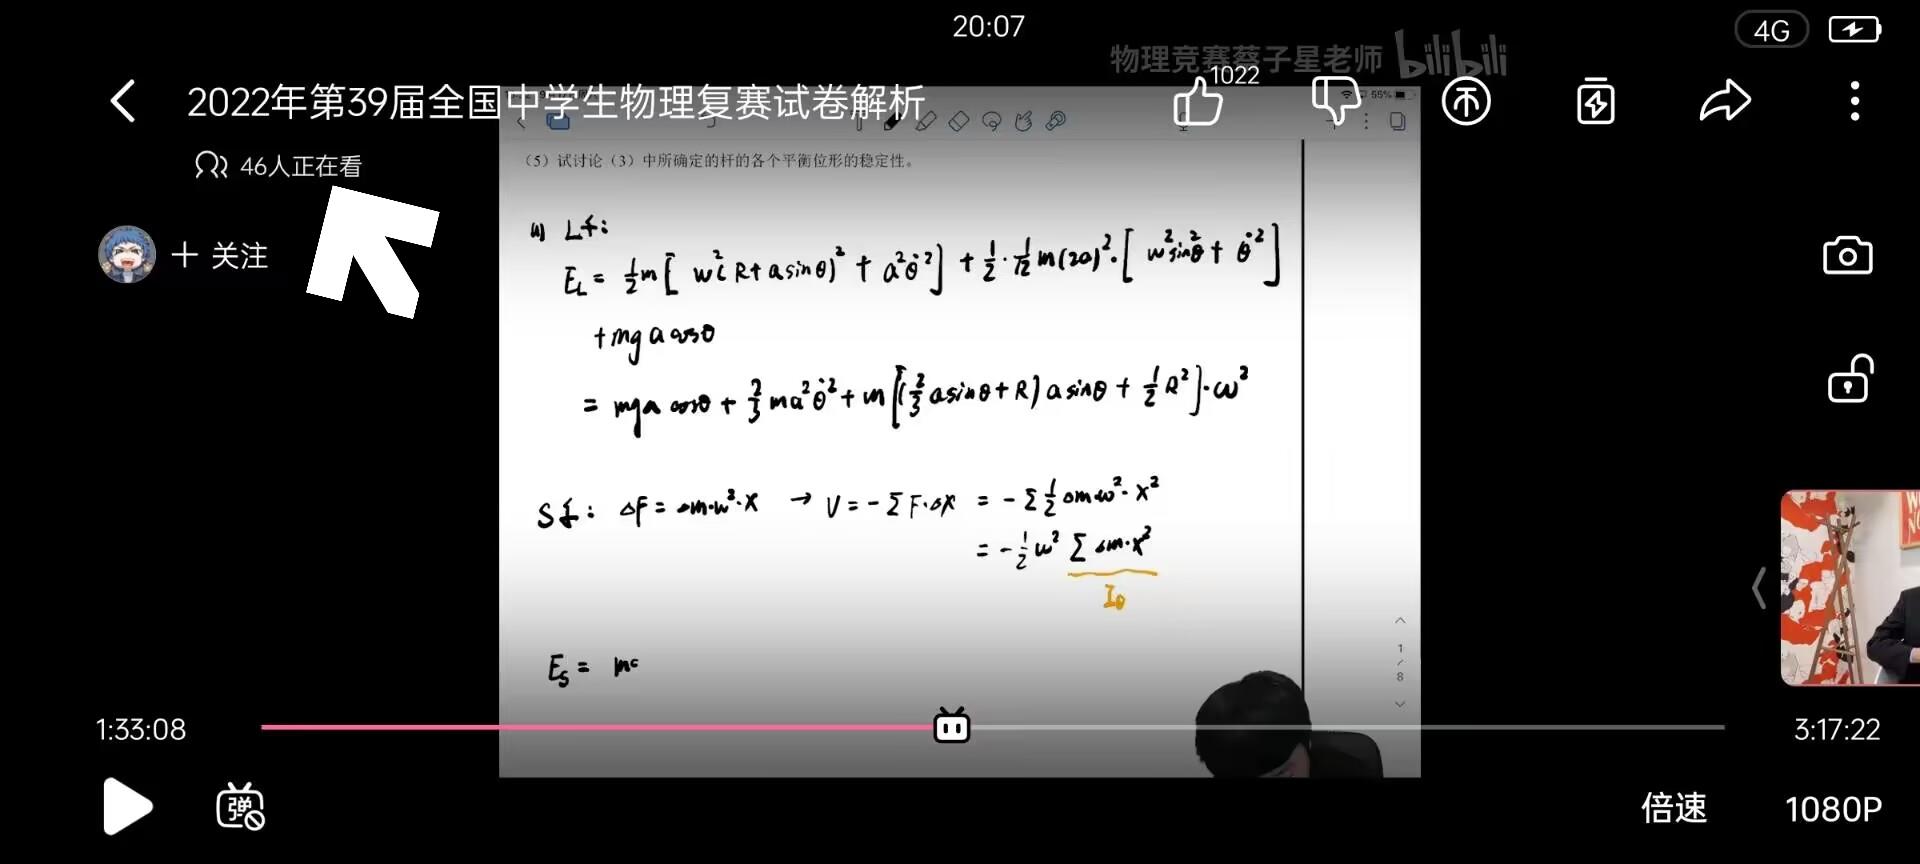 20:07
4G
物理竞赛蔡子星老师 bilibili
2022年第39届全国中学生物理复赛试卷解析
1022
55%
46人正在看
+ 关注
(5)试讨论(3)中所确定的杆的各个平衡位形的稳定性。
(4) L系:
E_L = 1/2 m [ w²(R+a sinθ)² + a²θ̇² ] + 1/2 · 1/12 m(2a)² · [ w² sin²θ + θ̇² ]
+ mg a cosθ
= mga cosθ + 2/3 ma²θ̇² + m [ (2/3 a sinθ + R) a sinθ + 1/2 R² ] · ω²
S系: ΔF = Δm·w²·x → V = -Σ F·Δx = -Σ 1/2 Δm w²·x²
= -1/2 w² Σ Δm·x²
I₀
E_S =
1
/
8
1:33:08
3:17:22
弹
倍速
1080P